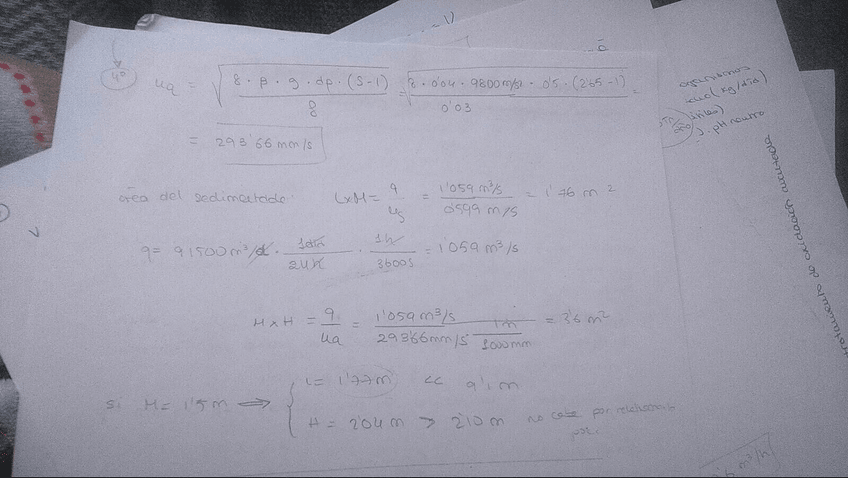 4º
uq = √(8 · β · g · dp · (S-1) / f) = √(8 · 0'04 · 9800 m/s² · 0'5 · (2'65-1) / 0'03) =
= 293'66 mm/s
área del sedimentador: LxM = q / us = 1'059 m³/s / 0'599 m/s = 1'76 m²
q = 91500 m³/d · 1día / 24h · 1h / 3600s = 1'059 m³/s
M x H = q / ua = 1'059 m³/s / 293'66 mm/s 1m / 1000mm = 3'6 m²
L = 1'77 m << 9'1 m
si M = 1'5 m ⟹
H = 2'04 m > 2'10 m no cabe por
por.
= 1)
organismos
(kg/día)
pH neutro
tratamiento de oxidación avanzada
m³/h